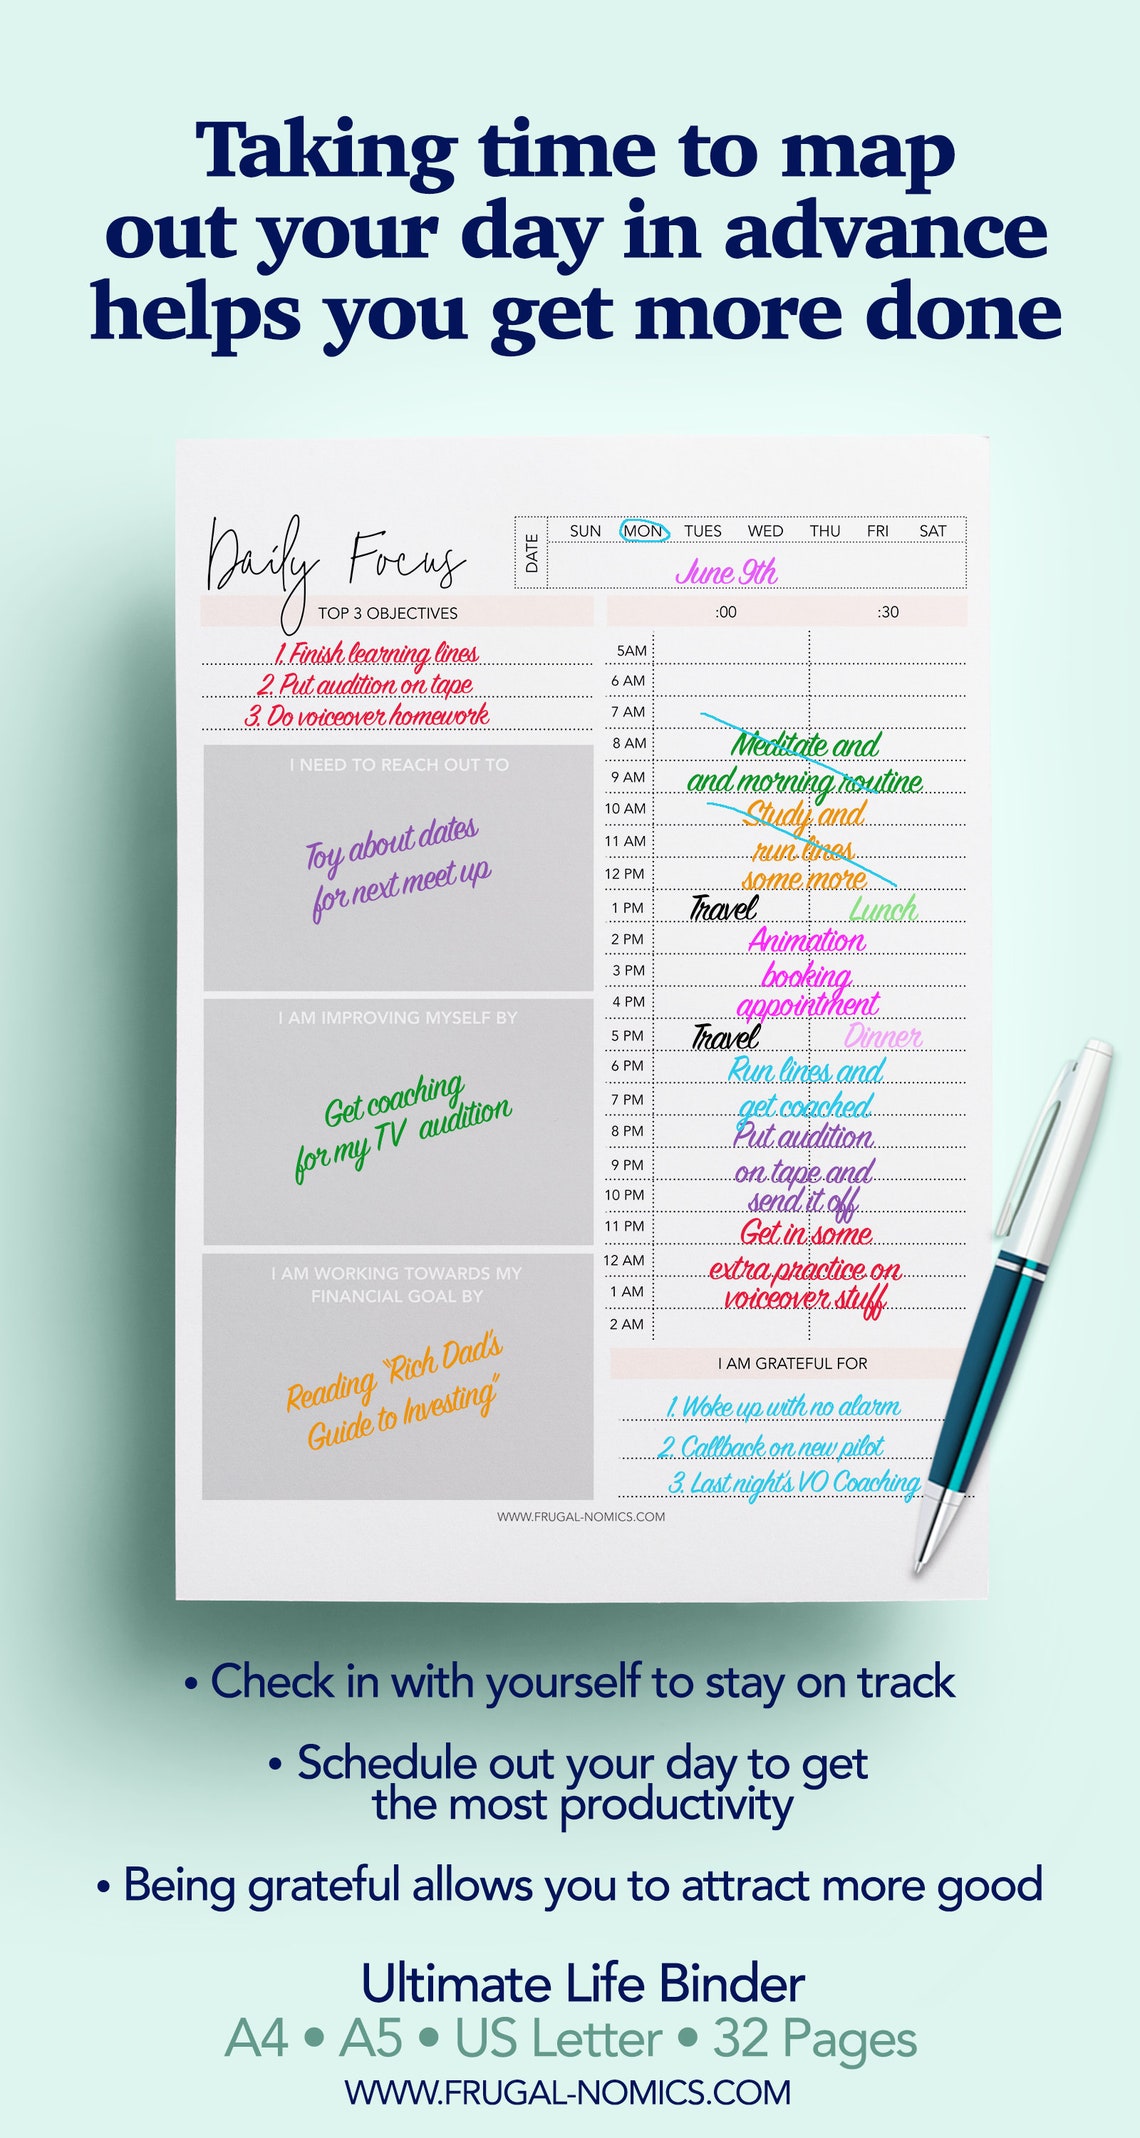 Taking time to map
out your day in advance
helps you get more done
Daily Focus
DATE
SUN MON TUES WED THU FRI SAT
June 9th
TOP 3 OBJECTIVES
1. Finish learning lines
2. Put audition on tape
3. Do voiceover homework
I NEED TO REACH OUT TO
Toy about dates
for next meet up
I AM IMPROVING MYSELF BY
Get coaching
for my TV audition
I AM WORKING TOWARDS MY
FINANCIAL GOAL BY
Reading "Rich Dad's
Guide to Investing"
:00 :30
5AM
6 AM
7 AM
8 AM Meditate and
9 AM and morning routine
10 AM Study and
11 AM run lines
12 PM some more
1 PM Travel Lunch
2 PM Animation
3 PM booking
4 PM appointment
5 PM Travel Dinner
6 PM Run lines and
7 PM get coached
8 PM Put audition
9 PM on tape and
10 PM send it off
11 PM Get in some
12 AM extra practice on
1 AM voiceover stuff
2 AM
I AM GRATEFUL FOR
1. Woke up with no alarm
2. Callback on new pilot
3. Last night's VO Coaching
WWW.FRUGAL-NOMICS.COM
• Check in with yourself to stay on track
• Schedule out your day to get
the most productivity
• Being grateful allows you to attract more good
Ultimate Life Binder
A4 • A5 • US Letter • 32 Pages
WWW.FRUGAL-NOMICS.COM